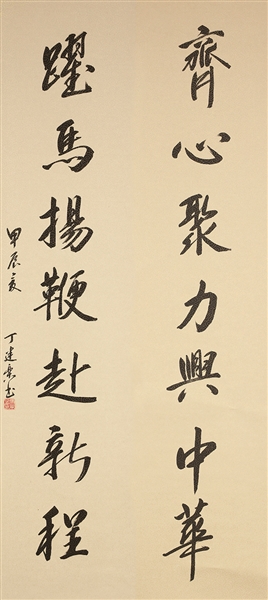 齊心聚力興中華
躍馬揚鞭赴新程
甲辰夏
丁建東书